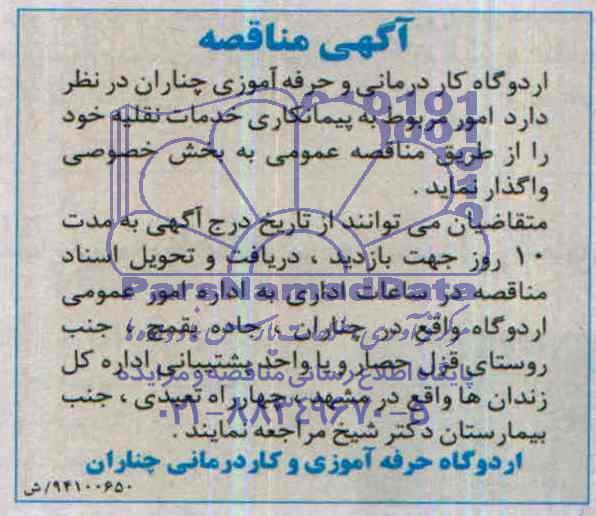 آگهی مناقصه
اردوگاه کار درمانی و حرفه آموزی چناران در نظر
دارد امور مربوط به پیمانکاری خدمات نقلیه خود
را از طریق مناقصه عمومی به بخش خصوصی
واگذار نماید .
متقاضیان می توانند از تاریخ درج آگهی به مدت
۱۰ روز جهت بازدید ، دریافت و تحویل اسناد
مناقصه در ساعات اداری به اداره امور عمومی
اردوگاه واقع در چناران ، جاده بقمچ ، جنب
روستای قزل حصار و یا واحد پشتیبانی اداره کل
زندان ها واقع در مشهد ، چهارراه تعبدی ، جنب
بیمارستان دکتر شیخ مراجعه نمایند .
اردوگاه حرفه آموزی و کاردرمانی چناران
۹۴۱۰۰۶۵۰/ش
ParsNamadData
پایگاه اطلاع رسانی مناقصه و مزایده
۰۲۱-۸۸۳۴۹۶۷۰-۵